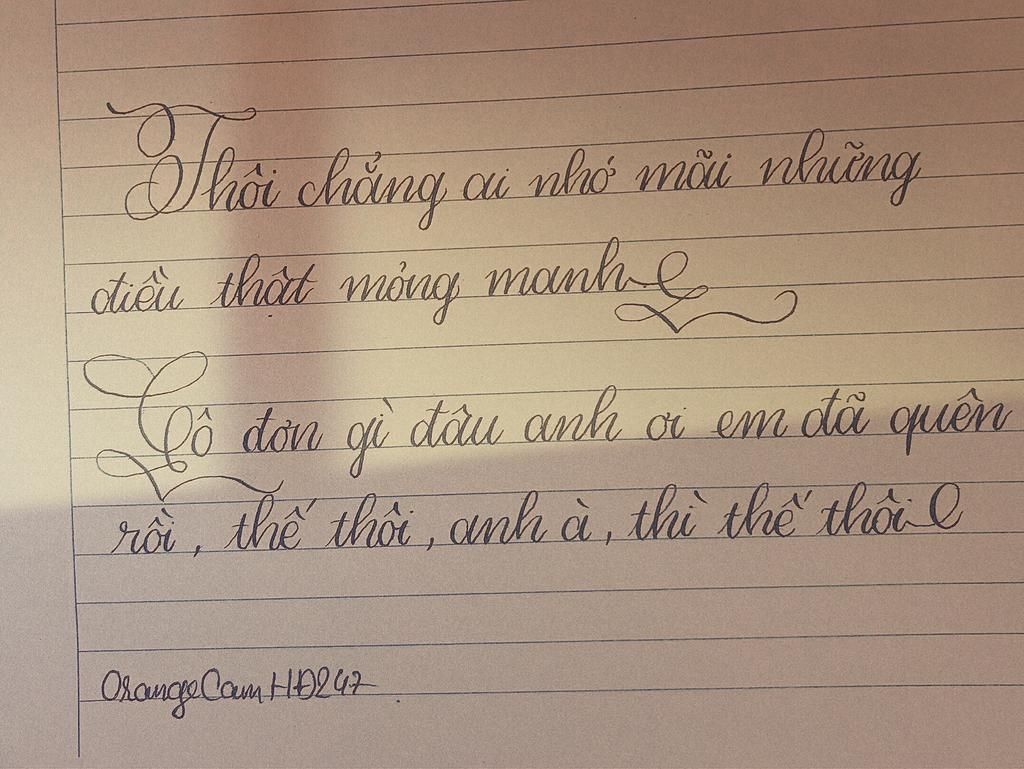 Thôi chẳng ai nhớ mãi những
điều thật mỏng manh
Cô đơn gì đâu anh ơi em đã quên
rồi, thế thôi, anh à, thì thế thôi
OrangeCamHĐ247